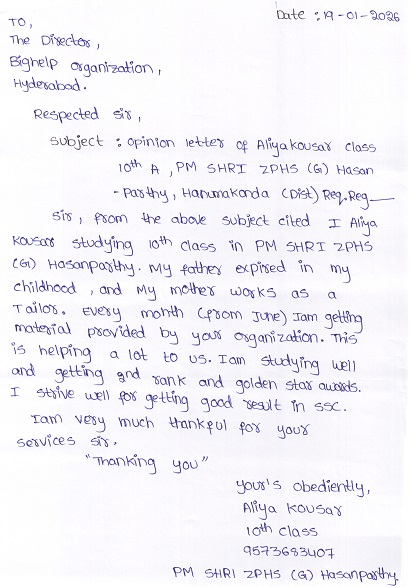 Date : 19-01-2026
TO,
The Director,
Bighelp organization,
Hyderabad.
Respected sir,
subject : opinion letter of Aliya kousar class
10th A, PM SHRI ZPHS (G) Hasan
- Parthy, Hanumakonda (Dist) Req. Reg—
Sir, from the above subject cited I Aliya
Kousar studying 10th class in PM SHRI ZPHS
(G) Hasanparthy. My father expired in my
childhood, and My mother works as a
Tailor. Every month (from June) Iam getting
material provided by your organization. This
is helping a lot to us. Iam studying well
and getting 2nd rank and golden star awards.
I strive well for getting good result in SSC.
Iam very much thankful for your
services sir.
"Thanking you"
your's obediently,
Aliya Kousar
10th class
9573683407
PM SHRI ZPHS (G) Hasanparthy.